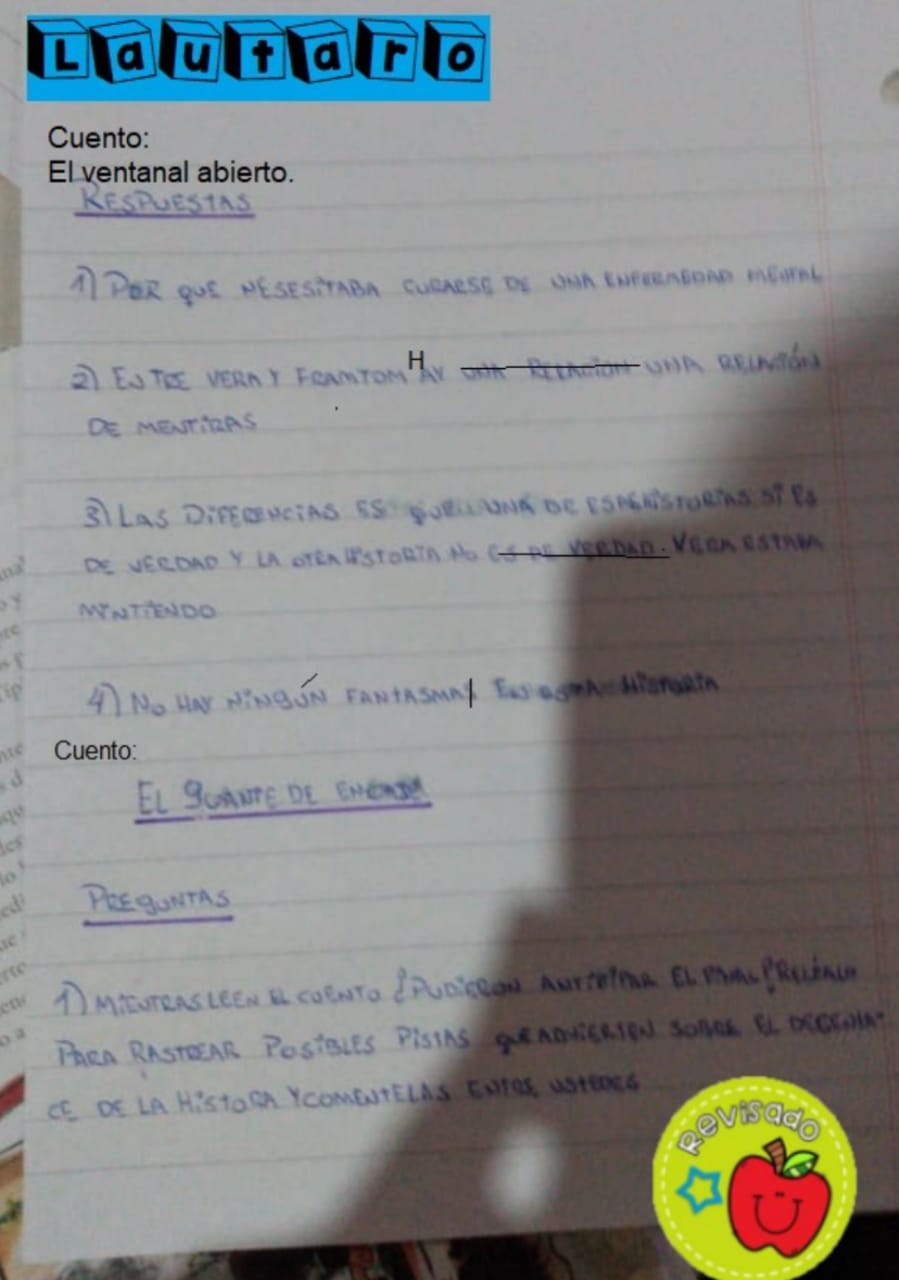 Lautaro
Cuento:
El ventanal abierto.
RESPUESTAS
1) POR QUE NESESITABA CURARSE DE UNA ENFERMEDAD MENTAL
2) ENTRE VERA Y FRAMTOM HAY UNA RELACION UNA RELACIÓN
DE MENTIRAS
3) LAS DIFERENCIAS ES QUE UNA DE ESAS HISTORIAS SI ES
DE VERDAD Y LA OTRA HISTORIA NO ES DE VERDAD. VERA ESTABA
MINTIENDO
4) NO HAY NINGÚN FANTASMA HISTORIA
Cuento:
EL GUANTE DE ENCAJE
PREGUNTAS
1) MIENTRAS LEEN EL CUENTO ¿PUDIERON ANTICIPAR EL FINAL?
PARA RASTREAR POSIBLES PISTAS QUE ADVIERTEN SOBRE EL DECENLA-
CE DE LA HISTORA Y COMENTELAS ENTRE USTEDES
Revisado